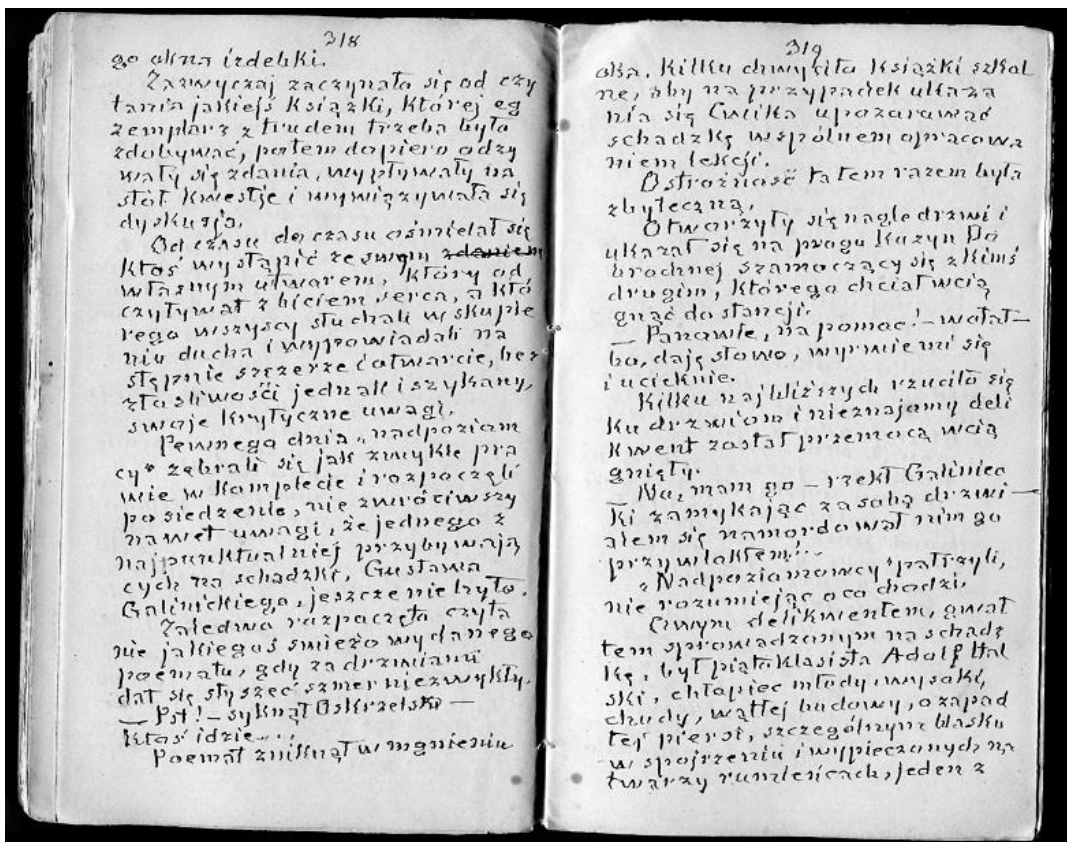 318
go okna izdebki.
Zazwyczaj zaczynało się od czy
tania jakiejś książki, której eg
zemplarz z trudem trzeba było
zdobywać, potem dopiero odzy
wały się zdania, wypływały na
stół kwestje i wywiązywała się
dyskusja.
Od czasu do czasu ośmielał się
ktoś wystąpić ze swym zdaniem
własnym utworem, który od
czytywał z biciem serca, a któ
rego wszyscy słuchali w skupie
niu ducha i wypowiadali na
stępnie szczerze i otwarcie, bez
złośliwości jednak i szykany,
swoje krytyczne uwagi.
Pewnego dnia „nadpoziom
cy" zebrali się jak zwykle pra
wie w komplecie i rozpoczęli
posiedzenie, nie zwróciwszy
nawet uwagi, że jednego z
najpunktualniej przybywają
cych na schadzki, Gustawa
Galinickiego, jeszcze nie było.
Zaledwo rozpoczęło czyta
nie jakiegoś świeżo wydanego
poematu, gdy za drzwiami
dał się słyszeć szmer niezwykły.
— Pst! – syknął Oskrzelski —
ktoś idzie...
Poemat zniknął w mgnieniu
319
oka. Kilku chwyciło książki szkol
ne, aby na przypadek ukaza
nia się Ćwika upozorować
schadzkę wspólnem opracowa
niem lekcji.
Ostrożność tatem razem była
zbyteczną.
Otworzyły się nagle drzwi i
ukazał się na progu kuzyn Do
brochnej szamoczący się z kimś
drugim, którego chciał wcią
gnąć do stancji.
— Panowie, na pomoc! – wołał —
bo, daję słowo, wyrwie mi się
i ucieknie.
Kilku najbliższych rzuciło się
ku drzwiom i nieznajomy deli
kwent został przemocą wcią
gnięty.
— No, mam go – rzekł Galinic
ki zamykając za sobą drzwi —
alem się namordował nim go
przywlokłem!..
„Nadpoziomowcy" patrzyli,
nie rozumiejąc o co chodzi.
Owym delikwentem, gwał
tem sprowadzonym na schadz
kę, był piątoklasista Adolf Hal
ski, chłopiec młody, wysoki,
chudy, wątłej budowy, o zapad
łej piersi, szczególnym blasku
w spojrzeniu i wypieczonych na
twarzy rumieńcach, jeden z